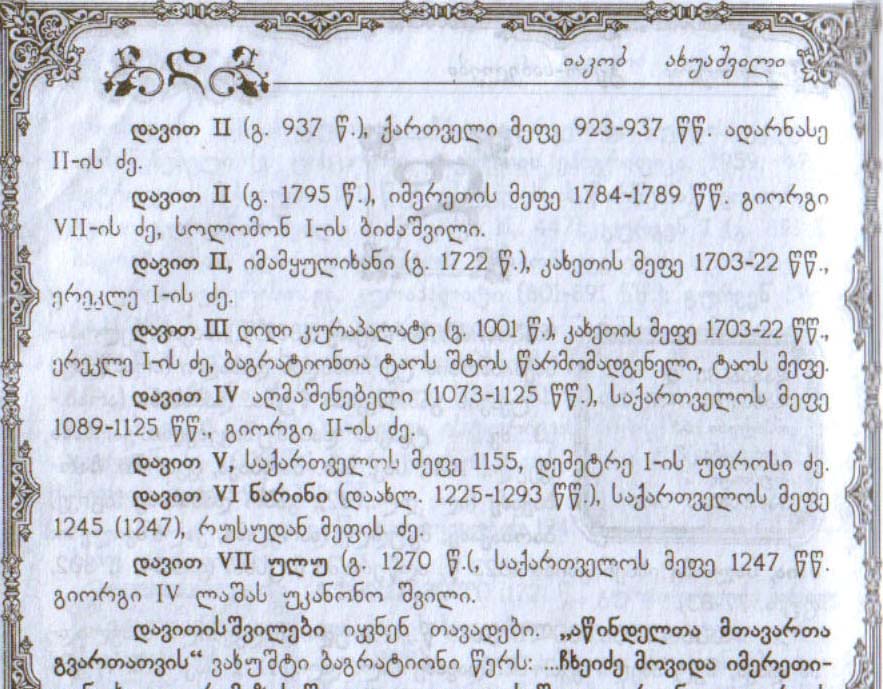 დ
იაკობ ახუაშვილი
დავით II (გ. 937 წ.), ქართველი მეფე 923-937 წწ. ადარნასე
II-ის ძე.
დავით II (გ. 1795 წ.), იმერეთის მეფე 1784-1789 წწ. გიორგი
VII-ის ძე, სოლომონ I-ის ბიძაშვილი.
დავით II, იმამყულიხანი (გ. 1722 წ.), კახეთის მეფე 1703-22 წწ.,
ერეკლე I-ის ძე.
დავით III დიდი კურაპალატი (გ. 1001 წ.), კახეთის მეფე 1703-22 წწ.,
ერეკლე I-ის ძე, ბაგრატიონთა ტაოს შტოს წარმომადგენელი, ტაოს მეფე.
დავით IV აღმაშენებელი (1073-1125 წწ.), საქართველოს მეფე
1089-1125 წწ., გიორგი II-ის ძე.
დავით V, საქართველოს მეფე 1155, დემეტრე I-ის უფროსი ძე.
დავით VI ნარინი (დაახლ. 1225-1293 წწ.), საქართველოს მეფე
1245 (1247), რუსუდან მეფის ძე.
დავით VII ულუ (გ. 1270 წ.(, საქართველოს მეფე 1247 წწ.
გიორგი IV ლაშას უკანონო შვილი.
დავითისშვილები იყვნენ თავადები. „აწინდელთა მთავართა
გვართათვის“ ვახუშტი ბაგრატიონი წერს: ...ჩხეიძე მოვიდა იმერეთი-